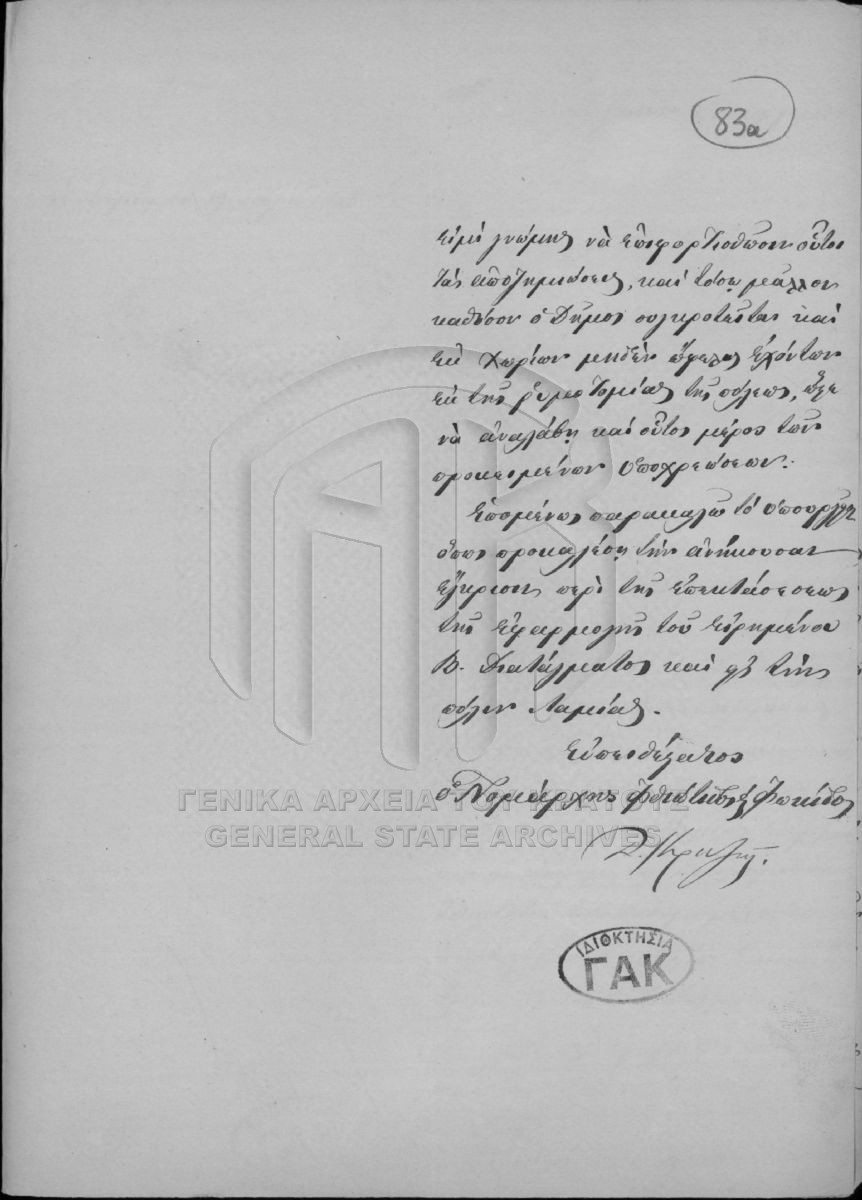 83α
εἰμὶ γνώμης νὰ ἐπιφορτισθῶσιν οὗτοι
τὰς ἀποζημιώσεις, καὶ τόσῳ μᾶλλον
καθόσον ὁ Δῆμος συγκροτεῖται καὶ
ἐκ χωρίων μηδὲν ὄφελος ἐχόντων
ἐκ τῆς ῥυμοτομίας τῆς πόλεως, ὥστε
νὰ ἀναλάβῃ καὶ οὗτος μέρος τῶν
προκειμένων ὑποχρεώσεων.
Ἑπομένως παρακαλῶ τὸ Ὑπουργεῖον
ὅπως προκαλέσῃ τὴν ἀνήκουσαν
ἔγκρισιν περὶ τῆς ἐπεκτάσεως
τῆς ἐφαρμογῆς τοῦ εἰρημένου
Β. Διατάγματος καὶ τὴν
πόλιν Λαμίας.
Εὐπειθέστατος
ὁ Νομάρχης Φθιώτιδος & Φωκίδος
ΓΕΝΙΚΑ ΑΡΧΕΙΑ ΤΟΥ ΚΡΑΤΟΥΣ
GENERAL STATE ARCHIVES
ΙΔΙΟΚΤΗΣΙΑ
ΓΑΚ